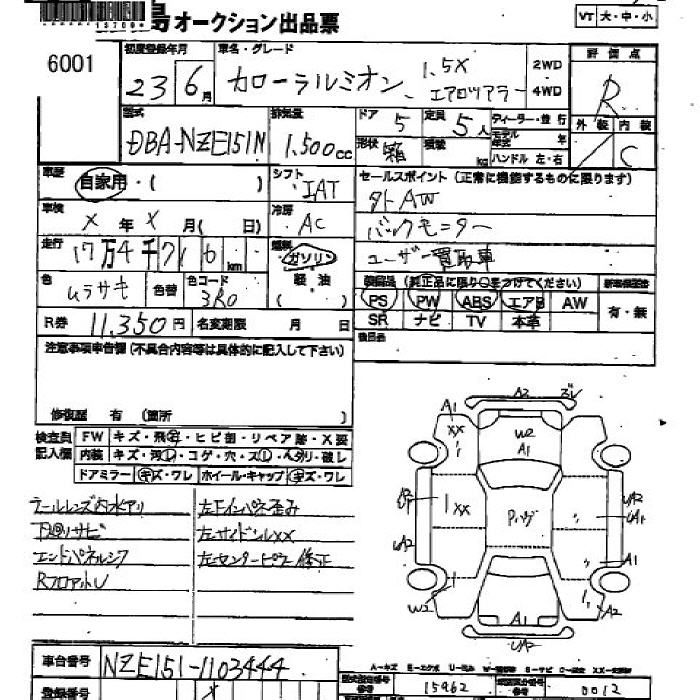 島オークション出品票
VT 大・中・小
6001
初度登録年月
23 6月
車名・グレード
カローラルミオン 1.5X エアロツアラー
2WD
4WD
評価点
R
型式
DBA-NZE151N
排気量
1.500cc
ドア
5
定員
5人
ディーラー・並行
モデル 年
形状
箱
積載 kg
ハンドル 左・右
外装 内装
C
車歴
自家用・( )
シフト
IAT
セールスポイント (正常に機能するものに限ります)
外AW
バックモニター
ユーザー買取車
車検
X 年 X 月( 日)
冷房
AC
走行
17万4千716km
燃料
ガソリン
軽油
( )
色
ムラサキ
色替
色コード
3R0
装備品 (純正品に限り○をつけてください)
PS PW ABS エアB AW
SR ナビ TV 本革
有・無
R券 11,350円
名変期限 月 日
注意事項申告欄 (不具合内容等は具体的に記入して下さい)
修復歴 有 (箇所 )
検査員記入欄
FW キズ・飛石・ヒビ割・リペア跡・X要
内装
ドアミラー キズ・ワレ
ホイール・キャップ キズ・ワレ
テールレンズ内水アリ
下回りサビ
エンドパネルシワ
Rフロア
左Fインパネ歪み
左サイドシルXX
左センターピラー修正
A1
A2
XX
W2
A1
XX
UA2
UA1
A1
W2
A2
A1
UA2
車台番号
NZE151-1103444
登録番号
X
型式指定番号
15962
類別区分番号
0012